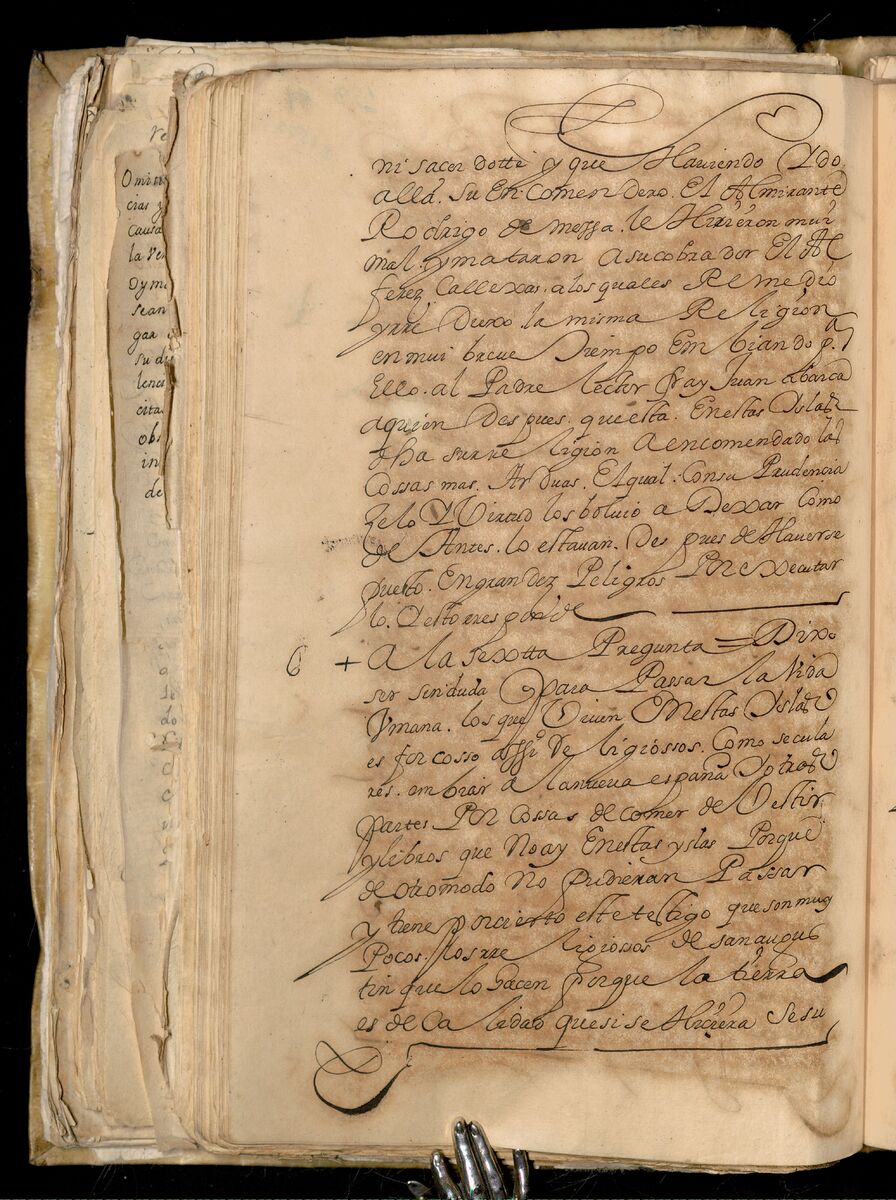 ni sacerdotte y que Haviendo Ydo
alla. Su En Comendero. El Almirante
Rodrigo de messa. le Hirieron mui
mal. y mataron a su cobrador El Al
ferez Callexas. a los quales Remedio
y rre Duxo. la misma Religion
en mui breue Tiempo Embiando p.ª
Ello. al Padre lector fray Juan abarca
a quien Des pues. que esta. En estas Yslas
dha su rre ligion a encomendado las
Cossas mas. Arduas. El qual. Con su Prudencia
Zelo Y Virtud los boluio a Dexar Como
de Antes. lo estauan. Des pues de Hauerse
puesto. En grandez Peligros Por executar
lo. Y esto rresponde
6 + A la sextta Pregunta = Dixo
ser sin duda para Passar la Vida
Vmana. los que Viuen En estas Yslas
es forcosso assi Re ligiossos. Como secula
res. embiar a la nueua españa Y otras
partes Por cossas de comer de Vestir
y libros que No ay En estas yslas Porque
de otro modo No pudieran Passar
y tiene por cierto este testigo que son muy
Pocos. los rre ligiossos de san augus
tin que lo hacen porque la tierra
es de calidad que si se Hiciera se su
Omi
cias y
Causa
la
Dym
sean
gar
su di
lenc
cita
obs
in
de